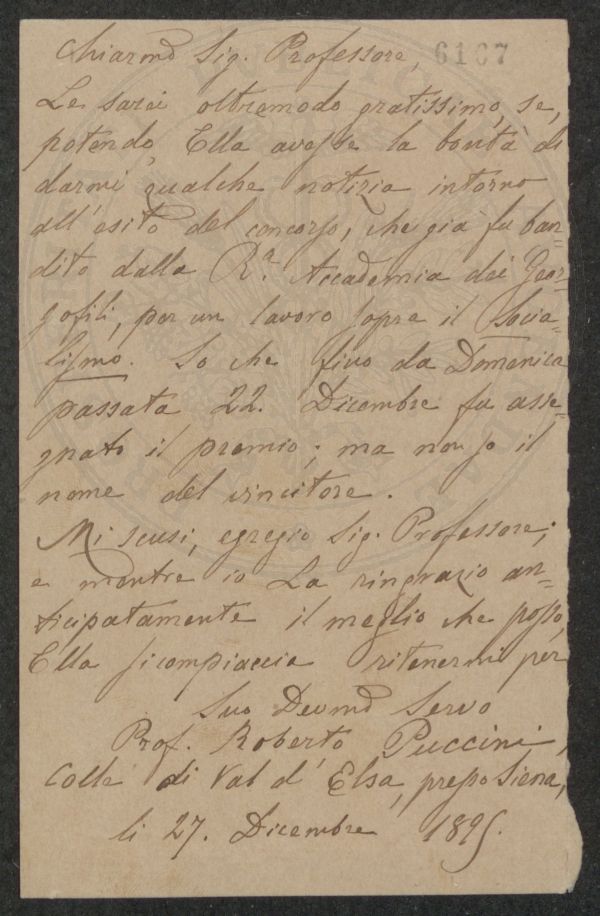 Chiarmo Sig. Professore, 6167
Le sarei oltremodo gratissimo, se,
potendo, Ella avesse la bontà di
darmi qualche notizia intorno
all'esito del concorso, che già fu ban-
dito dalla Ra. Accademia dei Geor-
gofili, per un lavoro sopra il Socia-
lismo. So che fino da Domenica
passata 22. Dicembre fu asse-
gnato il premio; ma non so il
nome del vincitore.
Mi scusi, egregio Sig. Professore;
e mentre io La ringrazio an-
ticipatamente il meglio che posso,
Ella si compiaccia ritenermi per
Suo Devmo Servo
Prof. Roberto Puccini,
Colle di Val d'Elsa, presso Siena,
li 27. Dicembre 1895.